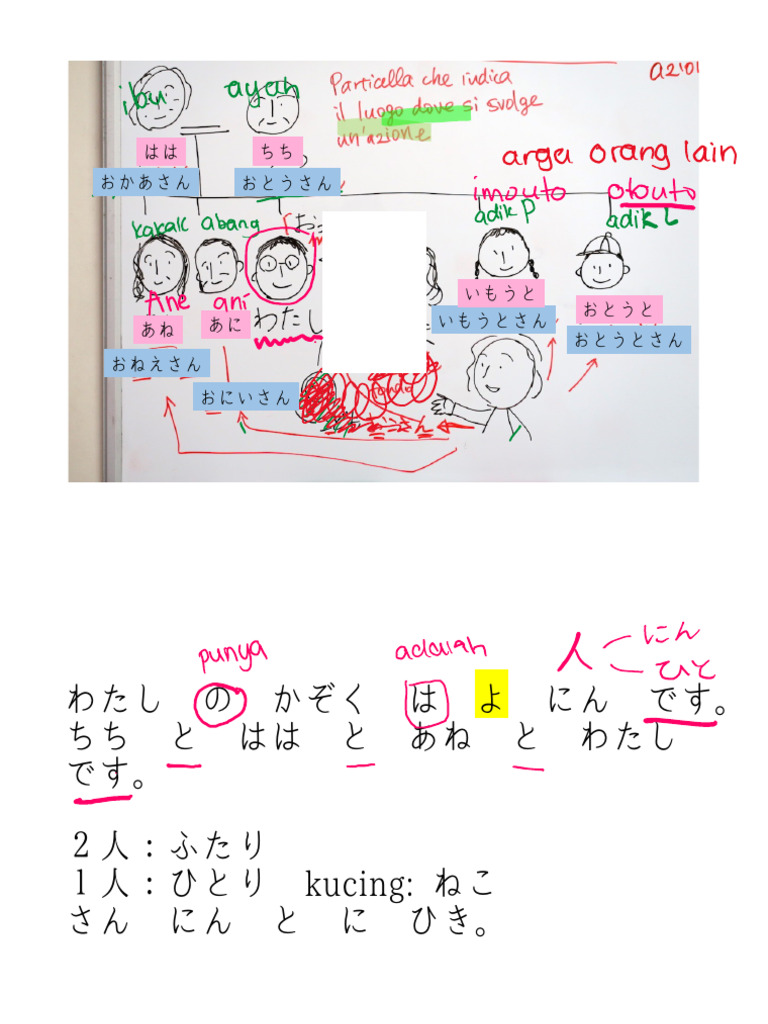 A2101
Particella che indica
il luogo dove si svolge
un'azione
ibu ayah
はは ちち
おかあさん おとうさん
orang lain
imouto otouto
adik P adik L
kakak abang
Ane ani
あね あに わたし
いもうと おとうと
いもうとさん おとうとさん
おねえさん
おにいさん
punya adalah 人 にん
ひと
わたし の かぞく は よ にん です。
ちち と はは と あね と わたし
です。
2人:ふたり
1人:ひとり kucing: ねこ
さん にん と に ひき。